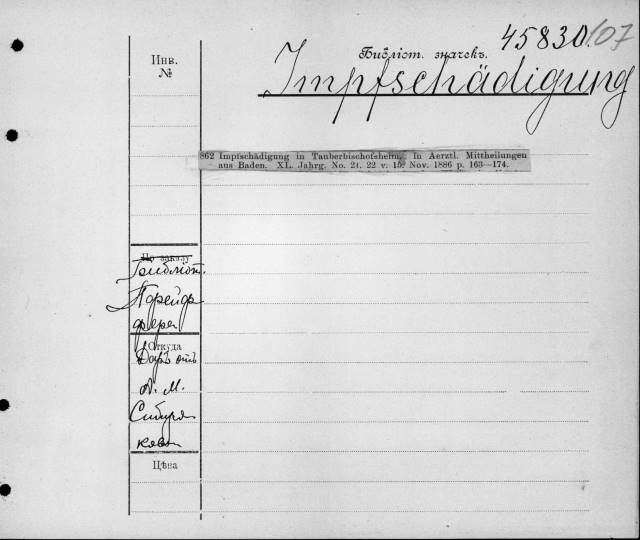 45830/07
Библіот. значекъ.
Impfschädigung
Инв.
№
862 Impfschädigung in Tauberbischofsheim. In Aerztl. Mittheilungen
aus Baden. XL. Jahrg. No. 21. 22 v. 15. Nov. 1886 p. 163—174.
По заказу
Библіот.
Пфейф
фера
Откуда
Даръ отъ
А. М.
Сибиря
кова
Цѣна